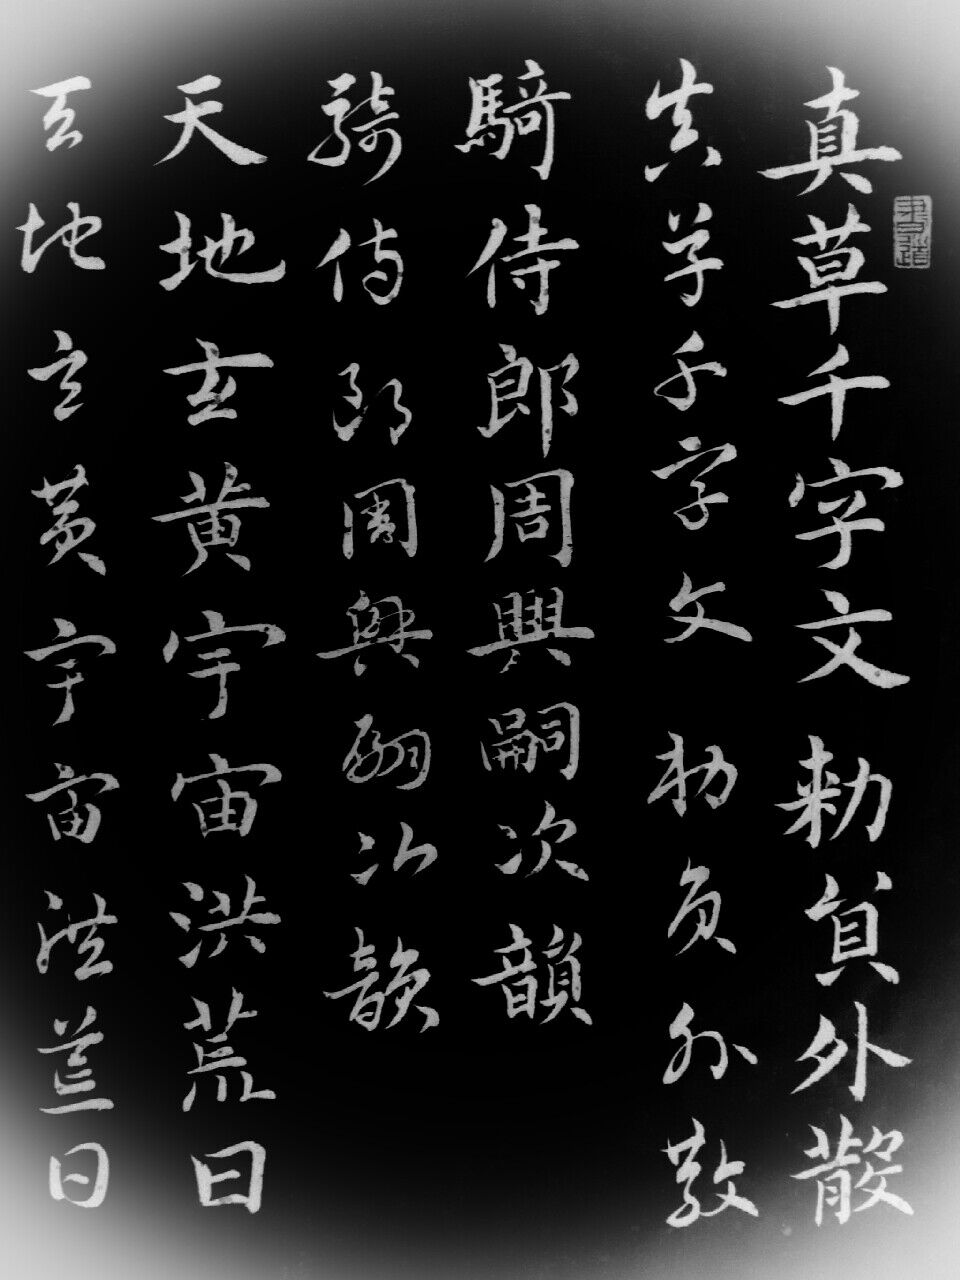 真草千字文勅員外散
真草千字文勅員外散
騎侍郎周興嗣次韻
騎侍郎周興嗣次韻
天地玄黃宇宙洪荒日
天地玄黃宇宙洪荒日